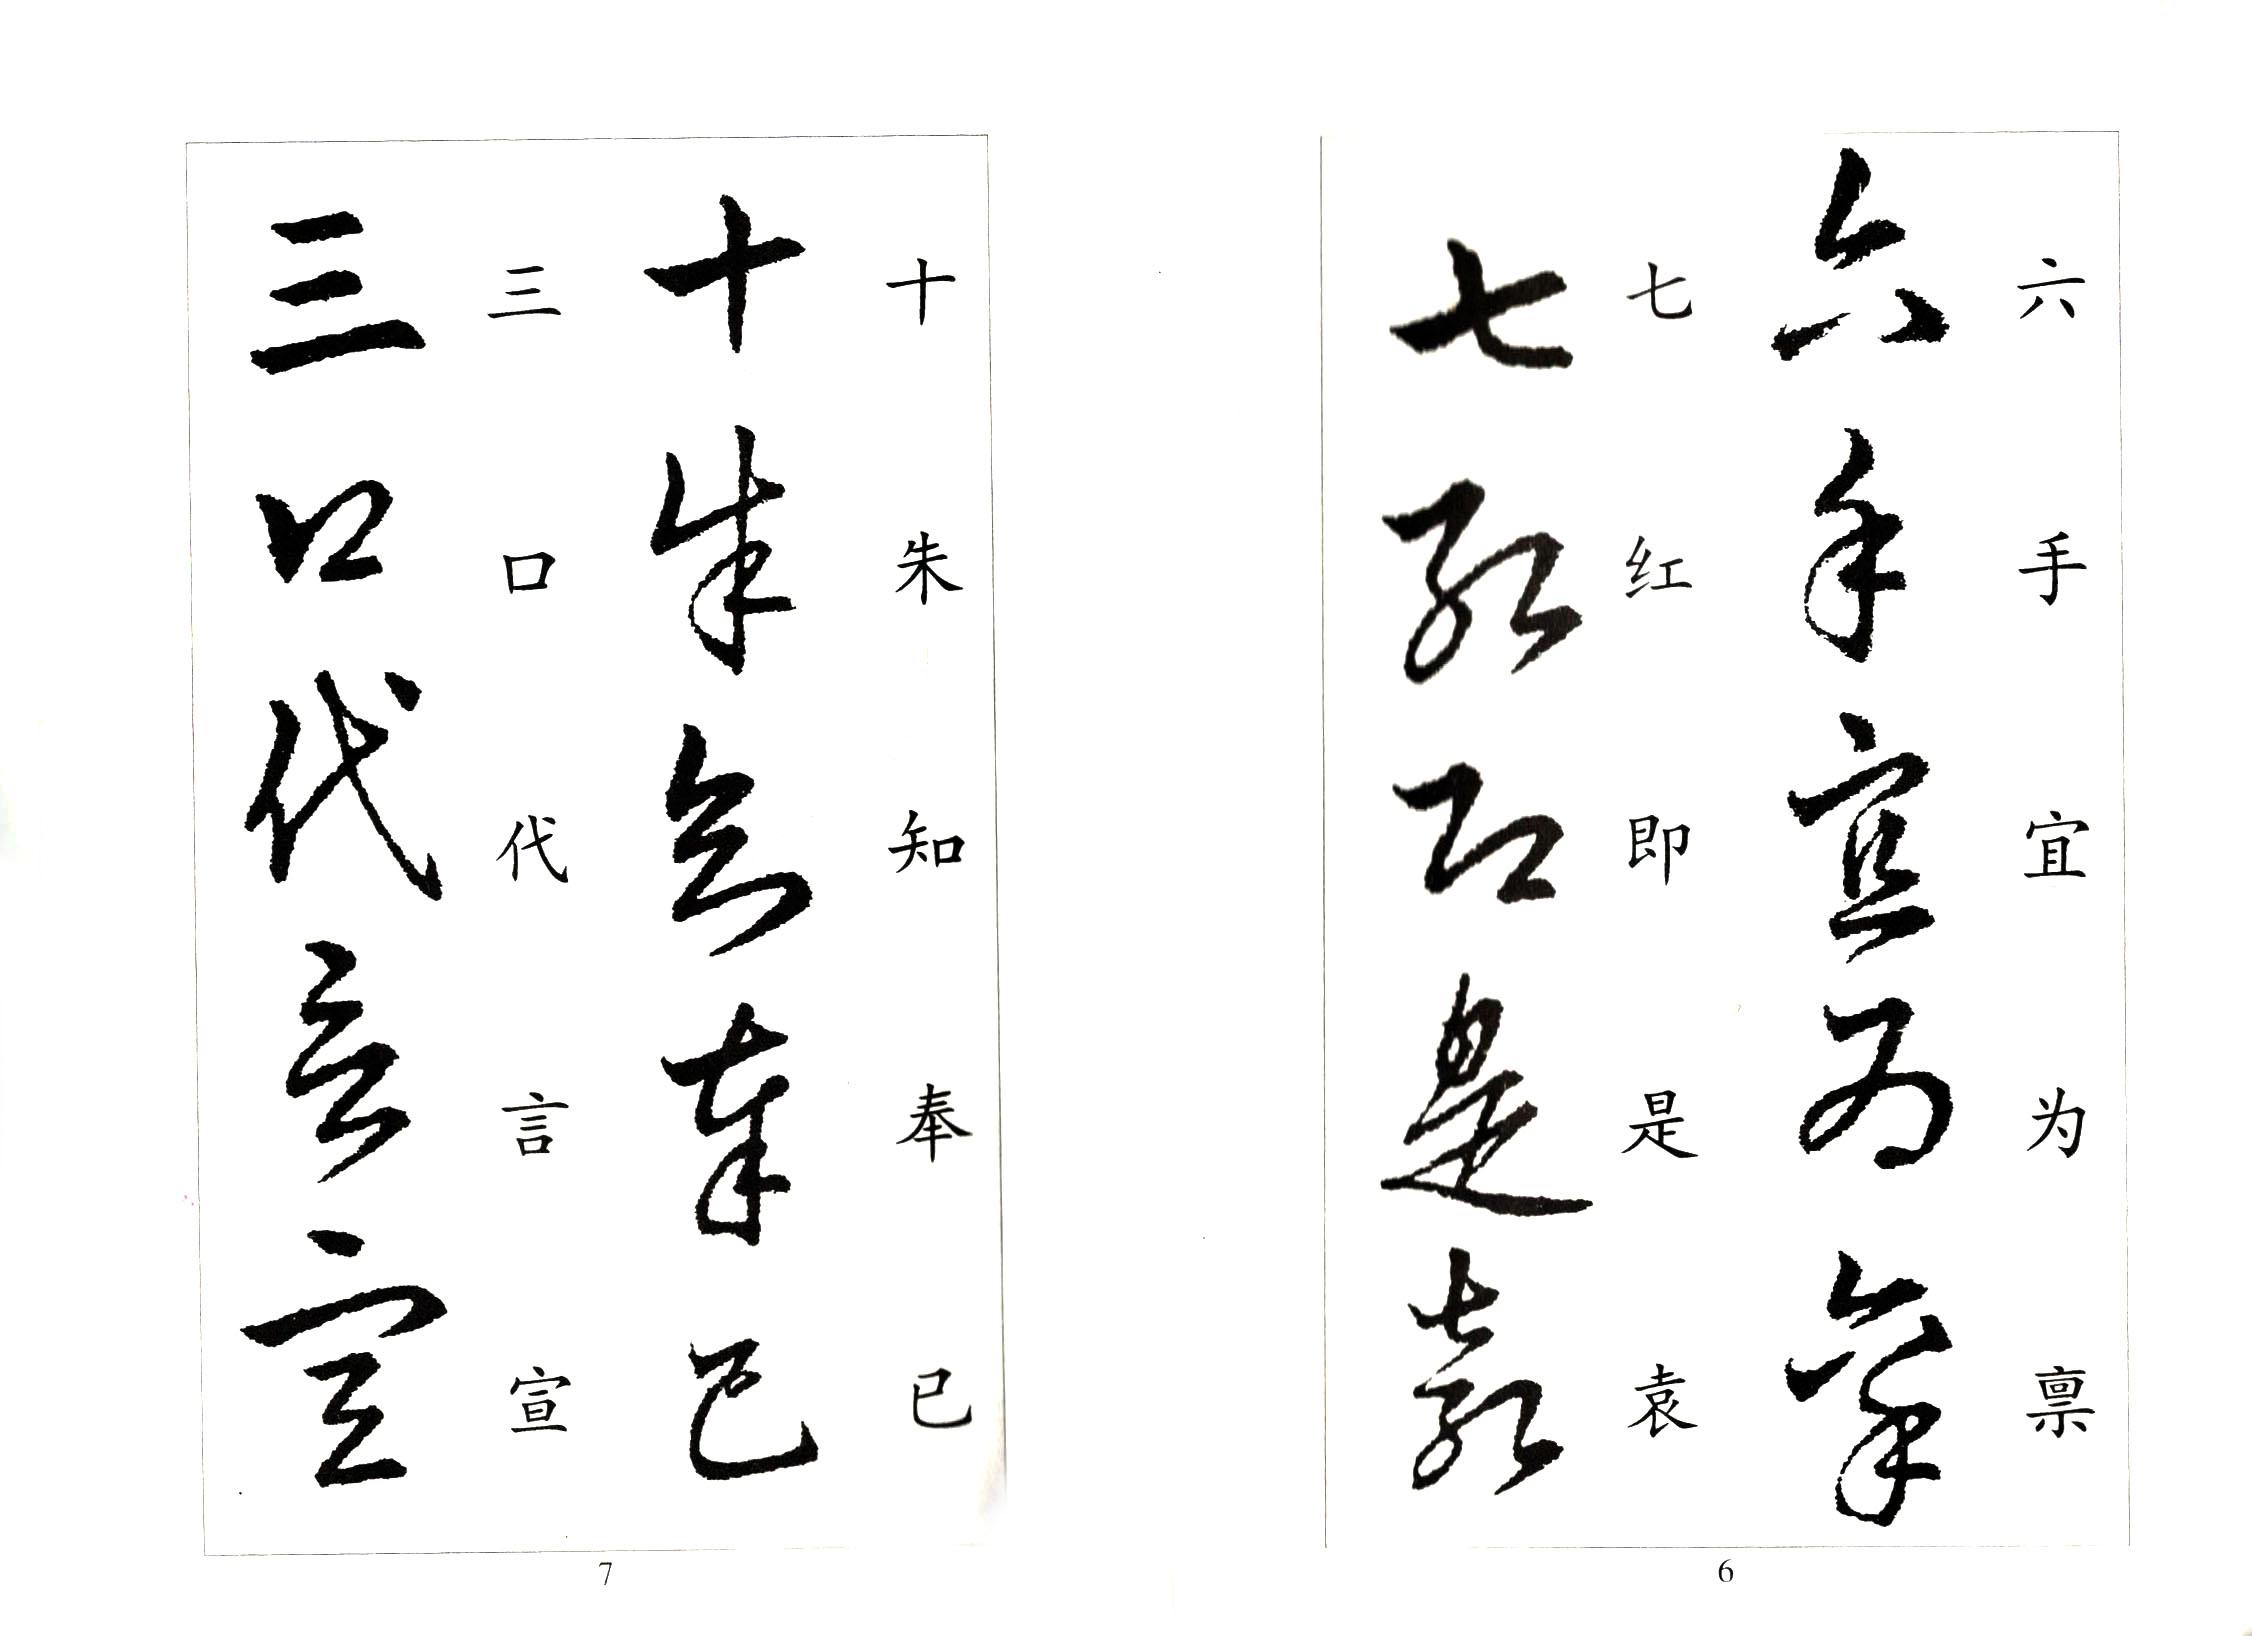 六手宜为禀
六手宜为禀
七红即是袁
七红即是袁
6
十朱知奉已
十朱知奉已
三口代言宣
三口代言宣
7